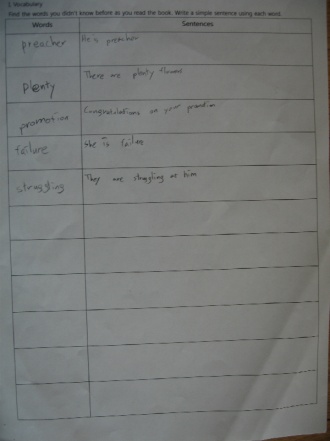 2. Vocabulary
Find the words you didn't know before as you read the book. Write a simple sentence using each word.
Words Sentences
preacher He is preacher
plenty There are plenty flowers
promotion Congratulations on your promotion
failure she is failure
struggling They are struggling at him